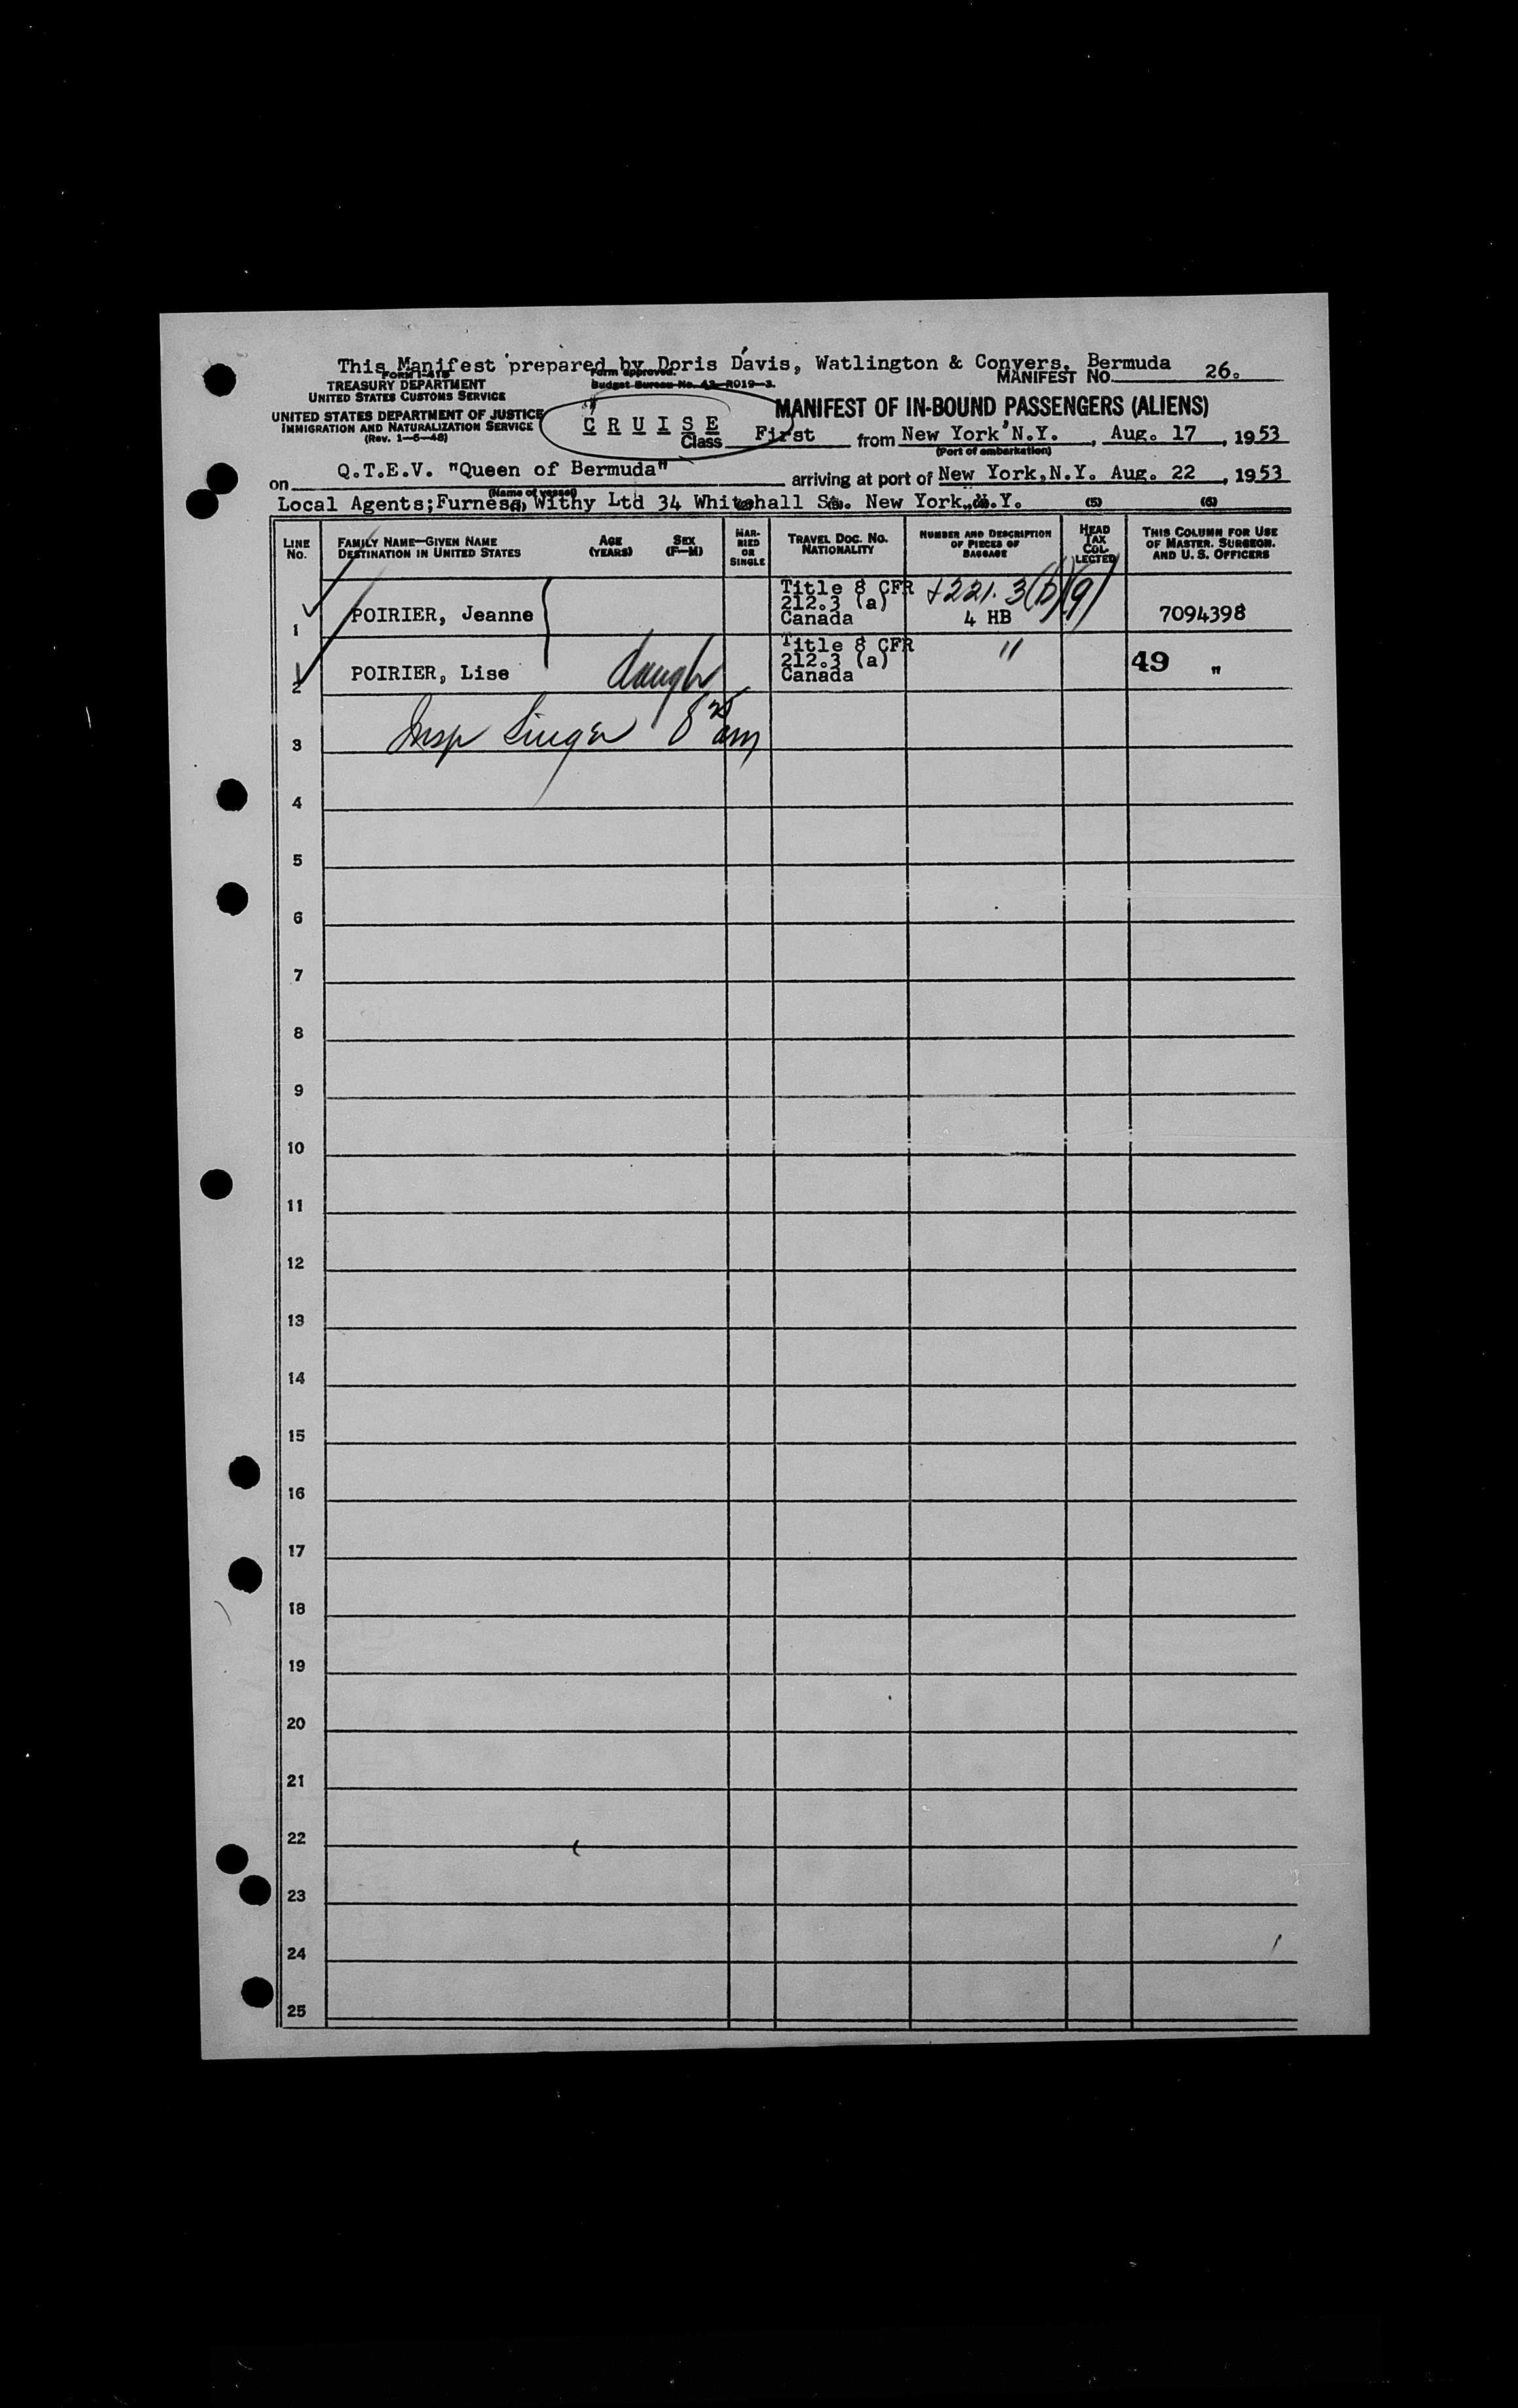 This Manifest prepared by Doris Davis, Watlington & Conyers, Bermuda
FORM I-418
Form approved.
MANIFEST NO. 26.
TREASURY DEPARTMENT
Budget Bureau No. 43-R019-3.
UNITED STATES CUSTOMS SERVICE
UNITED STATES DEPARTMENT OF JUSTICE
IMMIGRATION AND NATURALIZATION SERVICE
(Rev. 1-6-48)
CRUISE
MANIFEST OF IN-BOUND PASSENGERS (ALIENS)
Class First from New York N.Y., Aug. 17, 1953
(Port of embarkation)
on Q.T.E.V. "Queen of Bermuda" arriving at port of New York, N.Y. Aug. 22, 1953
(Name of vessel)
Local Agents; Furness, Withy Ltd 34 Whitehall St. New York, N.Y. (5) (6)
LINE No. FAMILY NAME—GIVEN NAME DESTINATION IN UNITED STATES AGE (YEARS) SEX (F-M) MARRIED OR SINGLE TRAVEL DOC. NO. NATIONALITY NUMBER AND DESCRIPTION OF PIECES OF BAGGAGE HEAD TAX COLLECTED THIS COLUMN FOR USE OF MASTER, SURGEON, AND U. S. OFFICERS
1 POIRIER, Jeanne Title 8 CFR 212.3 (a) Canada +221.3(b)(9) 4 HB 7094398
2 POIRIER, Lise daugh Title 8 CFR 212.3 (a) Canada " 49 "
3 Insp Singer 8 25 am
4
5
6
7
8
9
10
11
12
13
14
15
16
17
18
19
20
21
22
23
24
25